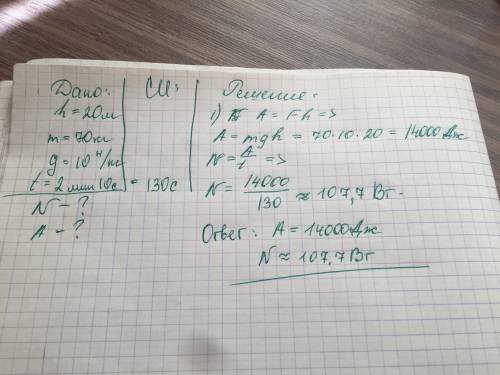 Дано:
h = 20м
m = 70кг
g = 10 н/кг
t = 2 мин 10с
N - ?
A - ?
СИ:
= 130с
Решение:
1) A = Fh =>
A = mgh = 70·10·20 = 14000 Дж
N = A/t =>
N = 14000/130 ≈ 107,7 Вт.
Ответ: A = 14000 Дж
N ≈ 107,7 Вт